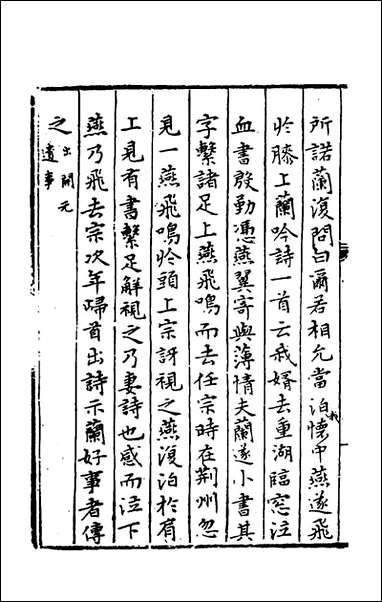 所諾蘭復問曰爾若相允當泊我懷中燕遂飛
於膝上蘭吟詩一首云我婿去重湖臨窓泣
血書殷勤憑燕翼寄與薄情夫蘭遂小書其
字繫諸足上燕飛鳴而去任宗時在荆州忽
見一燕飛鳴於頭上宗訝視之燕復泊於肩
上見有書繫足解視之乃妻詩也感而泣下
燕乃飛去宗次年歸首出詩示蘭好事者傳
之出開元遺事